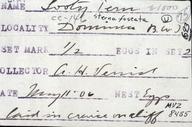 NAME Sooty Tern
CC-146 Sterna fuscata
LOCALITY Dominica B.W.I.
SET MARK 1/2 EGGS IN SET 2
COLLECTOR A. H. Verrill
DATE May 11 '06 NEST Eggs
laid in crevice on cliff
MVZ
8455